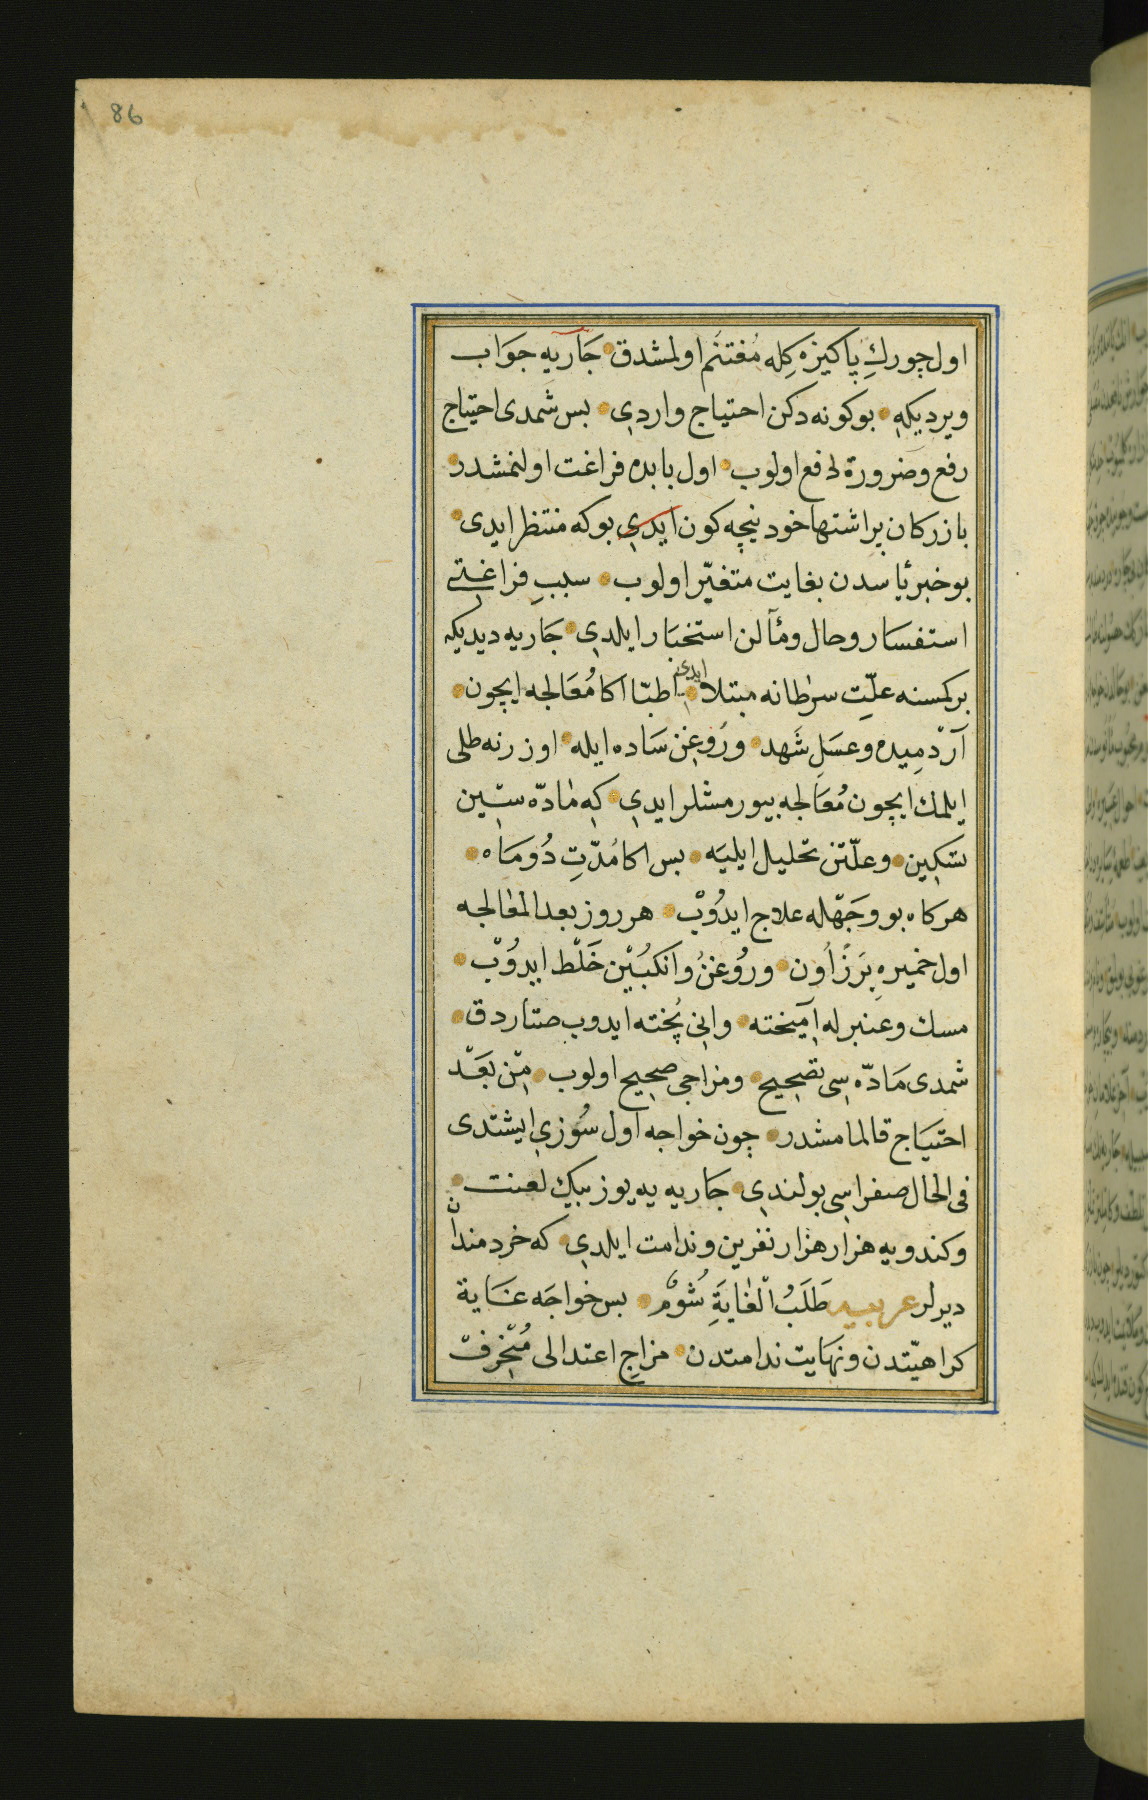 86
اول چورك پاكیزه كله مغتنم اولمشدق جاریه جواب
ویردیكه بو كونه دكن احتیاج واردی بس شمدی احتیاج
رفع وضرورة دفع اولوب اول بابده فراغت اولنمشدر
بازركان براشتها خود نیچه كون ایدی بوكه منتظر ایدی
بو خبر ئاسدن بغایت متغیّر اولوب سبب فراغتی
استفسار وحال ومآلن استخبار ایلدی جاریه دیدیكه
بر كمسنه علّت سرطانه مبتلا ایدی اطبّا اكا مُعَالجه ایچون
آرد میده وعسل شهد وروغن ساده ایله اوزرنه طلی
ایلمك ایچون مُعَالجه بیورمشلر ایدی كه مادّه سین
تسكین وعلّتن تحلیل ایلیه بس اكا مُدّتِ دُو ماه
هركاه بو وجهله علاج ایدوب هر روز بعد المعالجه
اول خمیره بَرزً اُون وروغن وانكبین خلط ایدوب
مسك وعنبرله آمیخته وانی پُخته ایدوب صتاردق
شمدی مادّه سی تصحیح ومزاجی صحیح اولوب مِن بَعْد
احتیاج قالمامشدر چون خواجه اول سوزی ایشتدی
فی الحال صفراسی بولندی جاریه یه یوز بیك لعنت
وكندویه هزار هزار نفرین وندامت ایلدی كه خردمندان
دیرلر عربیه طَلَبُ الْغَایَةِ شُومٌ بس خواجه غایة
كراهیّتدن ونهایت ندامتدن مزاج اعتدالی مُنْحَرِف